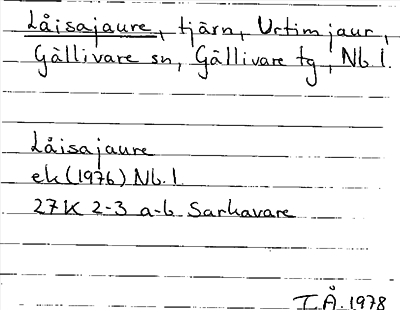 Låisajaure, tjärn, Urtimjaur,
Gällivare sn, Gällivare tg, Nb l.
Låisajaure
ek (1976) Nb. l.
27K 2-3 a-b Sarkavare
T.Å. 1978